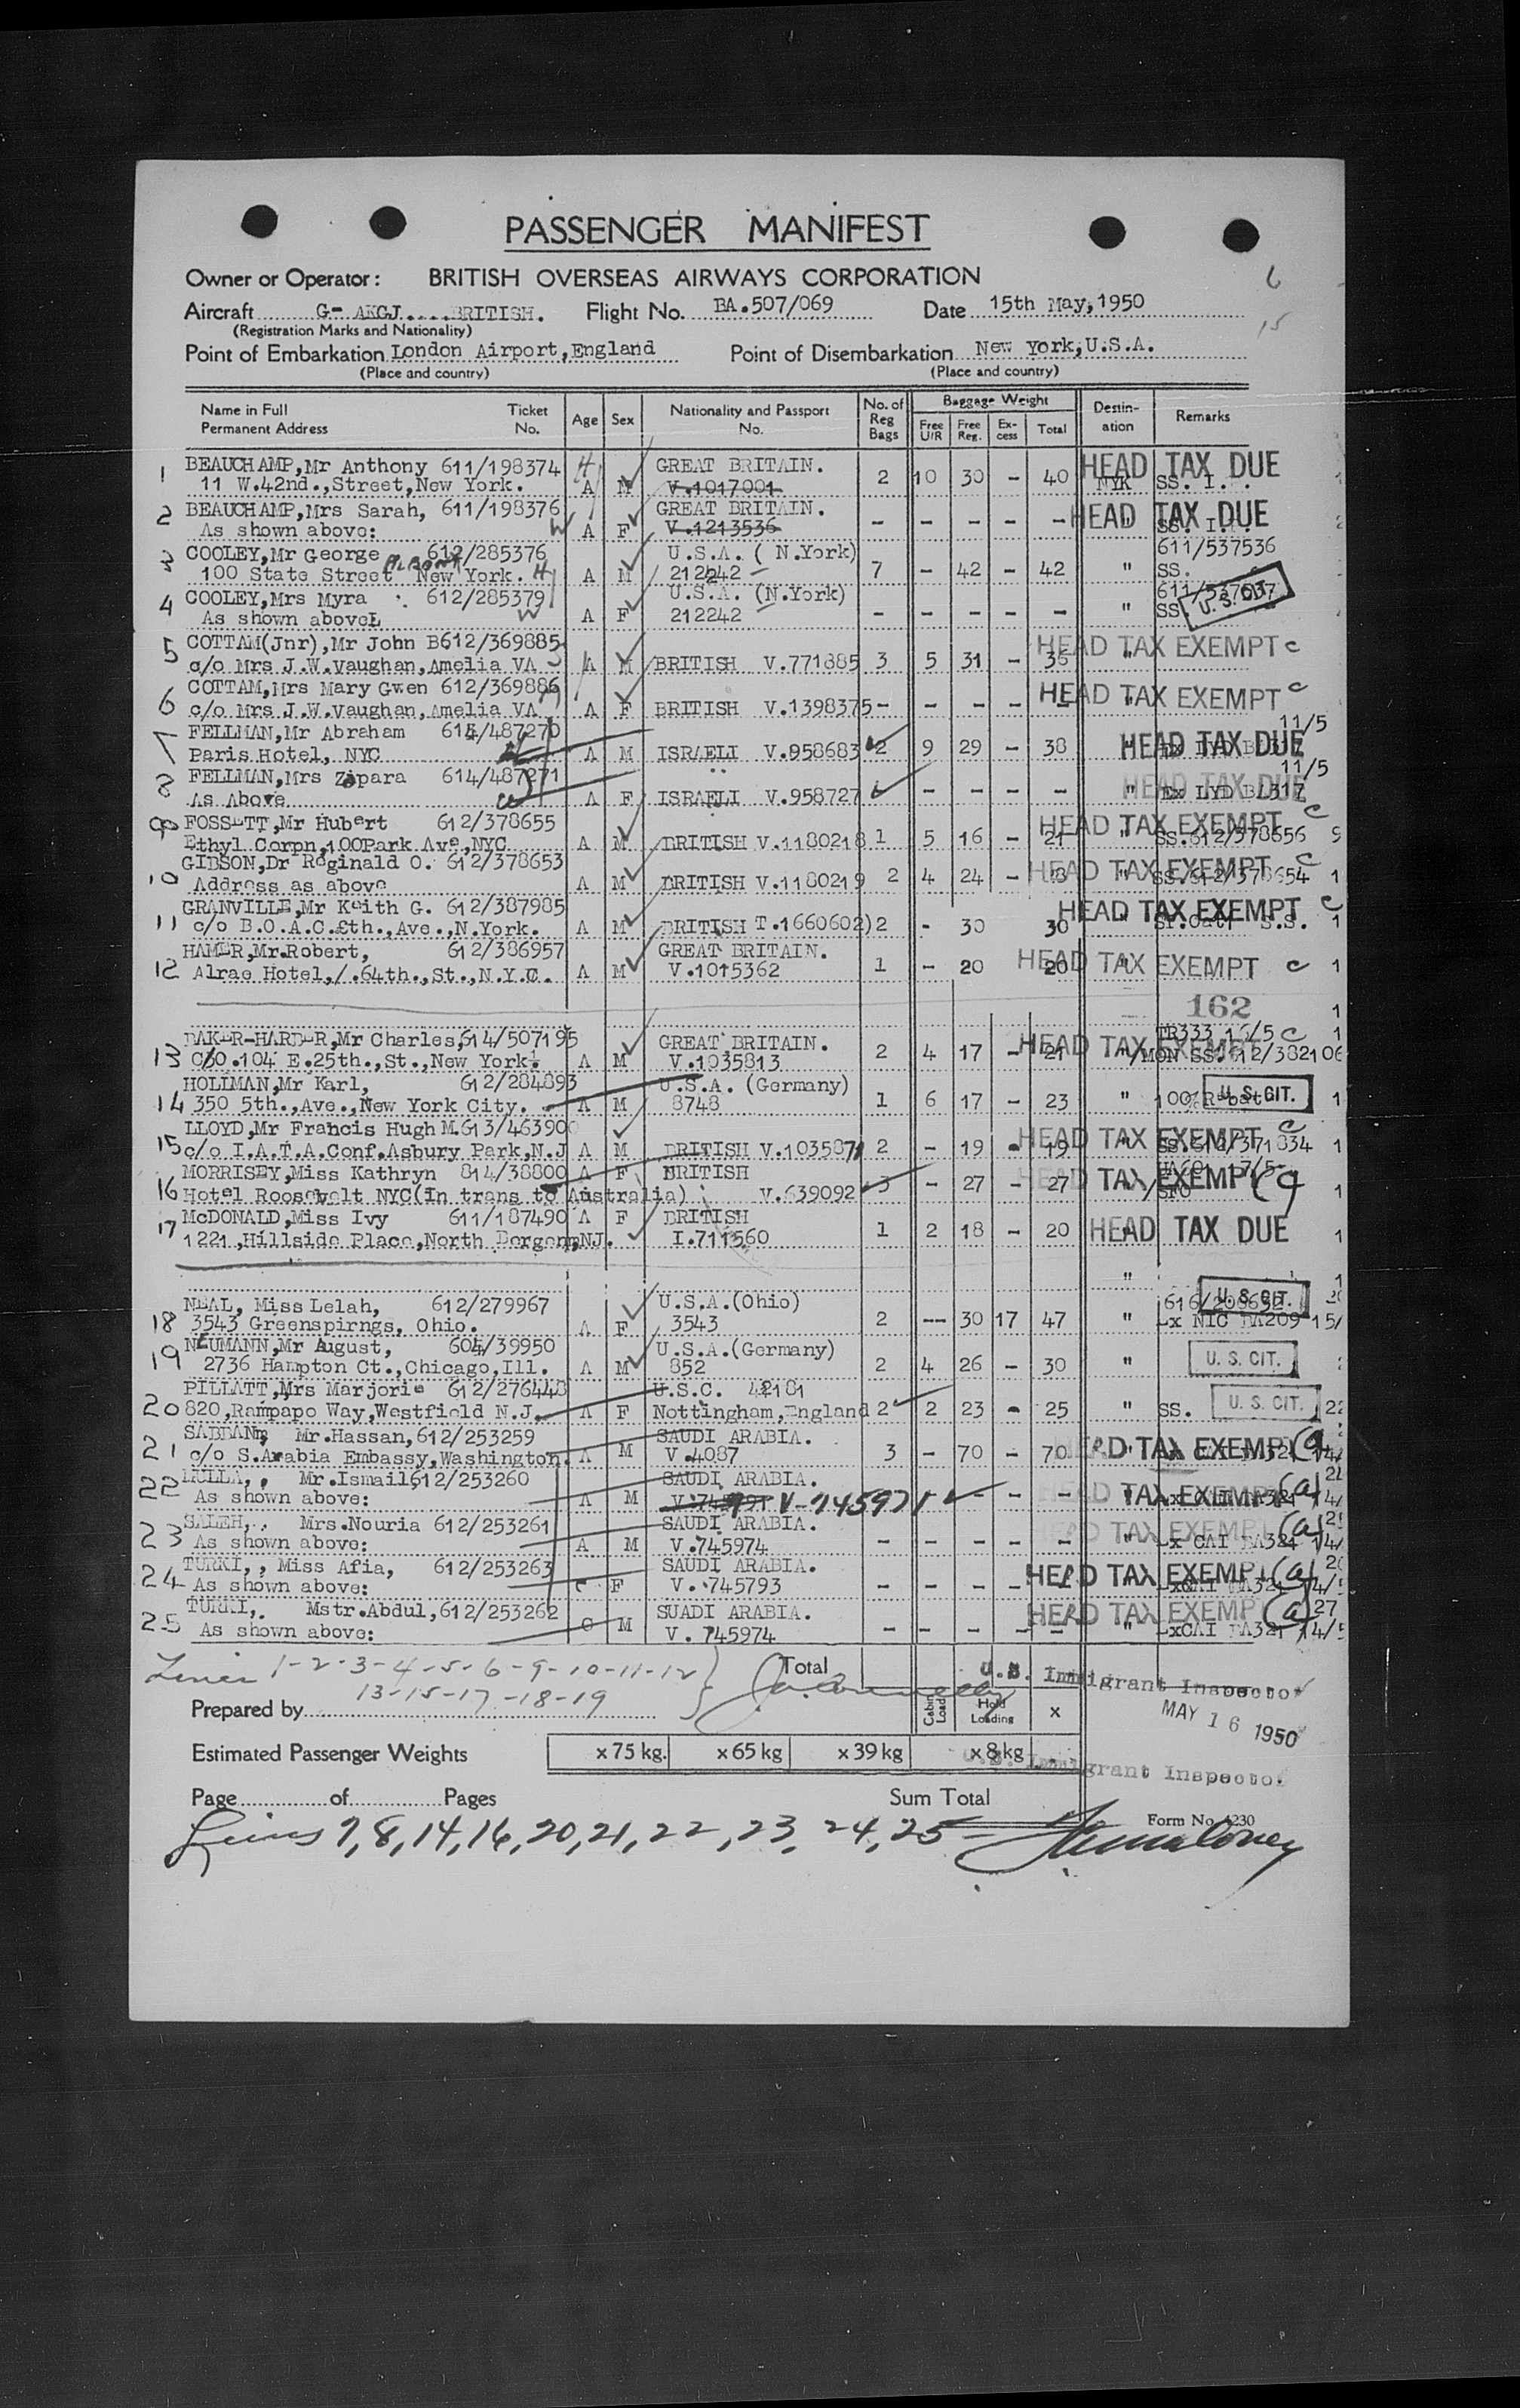 PASSENGER MANIFEST
6
Owner or Operator: BRITISH OVERSEAS AIRWAYS CORPORATION
Aircraft G- AKGJ....BRITISH. Flight No. BA.507/069 Date 15th May,1950
15
(Registration Marks and Nationality)
Point of Embarkation London Airport,England Point of Disembarkation New York,U.S.A.
(Place and country) (Place and country)
Name in Full Permanent Address Ticket No. Age Sex Nationality and Passport No. No. of Reg Bags Baggage Weight Free U/R Free Reg. Ex-cess Total Destin-ation Remarks
1 BEAUCHAMP,Mr Anthony 611/198374 H GREAT BRITAIN. HEAD TAX DUE
11 W.42nd.,Street,New York. A M V.1017001 2 10 30 - 40 NYK SS. I.
2 BEAUCHAMP,Mrs Sarah, 611/198376 GREAT BRITAIN. HEAD TAX DUE
As shown above: W A F V.1213536 - - - - - " SS. I.
3 COOLEY,Mr George 612/285376 U.S.A. ( N.York) 611/537536
100 State Street Albany New York. H A M 212242 7 - 42 - 42 " SS.
4 COOLEY,Mrs Myra 612/285379 U.S.A. (N.York)
As shown aboveL W A F 212242 - - - - - " SS. U.S.CIT.
5 COTTAM(Jnr),Mr John B612/369885 HEAD TAX EXEMPT c
c/o Mrs J.W.Vaughan,Amelia VA A M BRITISH V.771885 3 5 31 - 36 "
6 COTTAM,Mrs Mary Gwen 612/369886 HEAD TAX EXEMPT c
c/o Mrs J.W.Vaughan,Amelia VA A F BRITISH V.1398375 - - - - -
7 FELLMAN,Mr Abraham 614/487270 11/5
Paris Hotel, NYC A M ISRAELI V.958683 2 9 29 - 38 HEAD TAX DUE
8 FELLMAN,Mrs Zipara 614/487271 11/5 HEAD TAX DUE
As Above W A F ISRAELI V.958727 - - - - - " Ex LYD BA317
9 FOSSETT,Mr Hubert 612/378655 HEAD TAX EXEMPT c
Ethyl Corpn,100Park Ave,NYC A M BRITISH V.1180218 1 5 16 - 21 " SS.612/378656 9
10 GIBSON,Dr Reginald O. 612/378653 HEAD TAX EXEMPT c
Address as above A M BRITISH V.1180219 2 4 24 - " SS.612/378654 1
11 GRANVILLE,Mr Keith G. 612/387985 HEAD TAX EXEMPT c
c/o B.O.A.C.5th.,Ave.,N.York. A M BRITISH T.1660602) 2 - 30 30 S.S. 1
12 HAMER,Mr.Robert, 612/386957 GREAT BRITAIN.
Alrae Hotel,/.64th.,St.,N.Y.C. A M V.1015362 1 - 20 20 " HEAD TAX EXEMPT c 1
162 1
13 BAKER-HARBER,Mr Charles,614/507195 GREAT BRITAIN. TR333 16/5 c 1
C/O.104 E.25th.,St.,New York. A M V.1035813 2 4 17 - 21 HEAD TAX EXEMPT /MON SS.612/382106
14 HOLLMAN,Mr Karl, 612/284893 U.S.A. (Germany)
350 5th.,Ave.,New York City. A M 8748 1 6 17 - 23 " U.S.CIT. 1
15 LLOYD,Mr Francis Hugh M.613/463900 HEAD TAX EXEMPT c
c/o I.A.T.A.Conf.Asbury Park,N.J A M BRITISH V.1035871 2 - 19 - 19 " SS.612/371834 1
16 MORRISEY,Miss Kathryn 814/38800 A F BRITISH 17/5
Hotel Roosevelt NYC(In trans to Australia) V.639092 3 - 27 - 27 /SFO HEAD TAX EXEMPT 1
17 McDONALD,Miss Ivy 611/187490 A F BRITISH
1221,Hillside Place,North Bergen,NJ. I.711560 1 2 18 - 20 HEAD TAX DUE 1
" 1
18 NEAL, Miss Lelah, 612/279967 U.S.A.(Ohio) U.S.CIT.
3543 Greenspirngs, Ohio. A F 3543 2 -- 30 17 47 " Ex NIC BA209 15/
19 NEUMANN,Mr August, 604/39950 U.S.A.(Germany)
2736 Hampton Ct.,Chicago,Ill. A M 852 2 4 26 - 30 " U.S.CIT.
20 PILLATT,Mrs Marjorie 612/276448 U.S.C. 42181
820,Rampapo Way,Westfield N.J. A F Nottingham,England 2 2 23 - 25 " SS. U.S.CIT. 22
21 SABBAN, Mr.Hassan,612/253259 SAUDI ARABIA.
c/o S.Arabia Embassy,Washington. A M V.4087 3 - 70 - 70 " HEAD TAX EXEMPT (a)
22 MULLA,, Mr.Ismail,612/253260 SAUDI ARABIA.
As shown above: A M V-745971 - - TAX EXEMPT (a)
23 SALEH,, Mrs.Nouria 612/253261 SAUDI ARABIA. TAX EXEMPT (a)
As shown above: A M V.745974 - - - - - " Ex CAI BA321 14/
24 TURKI,, Miss Afia, 612/253263 SAUDI ARABIA. HEAD TAX EXEMPT (a)
As shown above: C F V.745793 - - - - ExCAI BA321 14/5
25 TURKI,. Mstr.Abdul,612/253262 SUADI ARABIA. HEAD TAX EXEMPT (a) 27
As shown above: C M V. 745974 - - - - - " ExCAI BA321 14/5
Lines 1-2-3-4-5-6-9-10-11-12 Total U.S. Immigrant Inspector
13-15-17-18-19
Prepared by Cabin Load Hold Loading x MAY 16 1950
Estimated Passenger Weights x75 kg. x65 kg x39 kg x8 kg U.S. Immigrant Inspector
Page of Pages Sum Total
Form No. 4230
Lines 7,8,14,16,20,21,22,23,24,25-